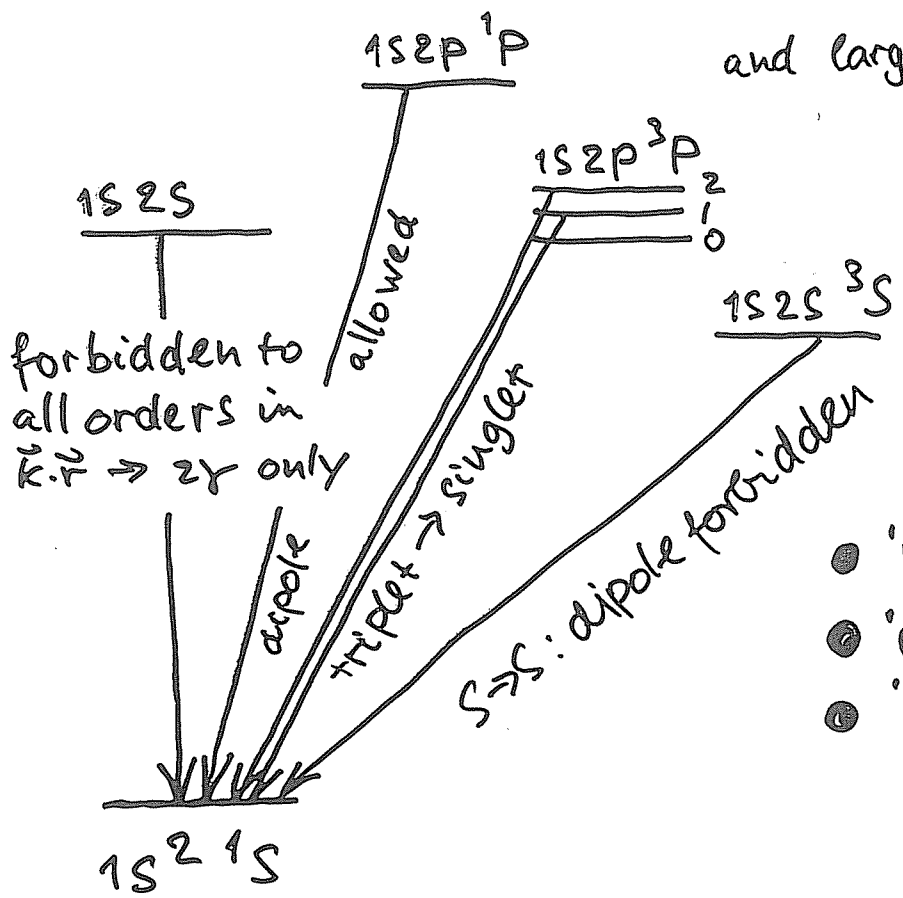 1s2p ¹P
and larg
1s2p ³P
2
1
0
1s 2s
allowed
1s2s ³S
forbidden to
all orders in
k⃗·r⃗ → 2γ only
dipole
triplet → singlet
S→S: dipole forbidden
1s² ¹S